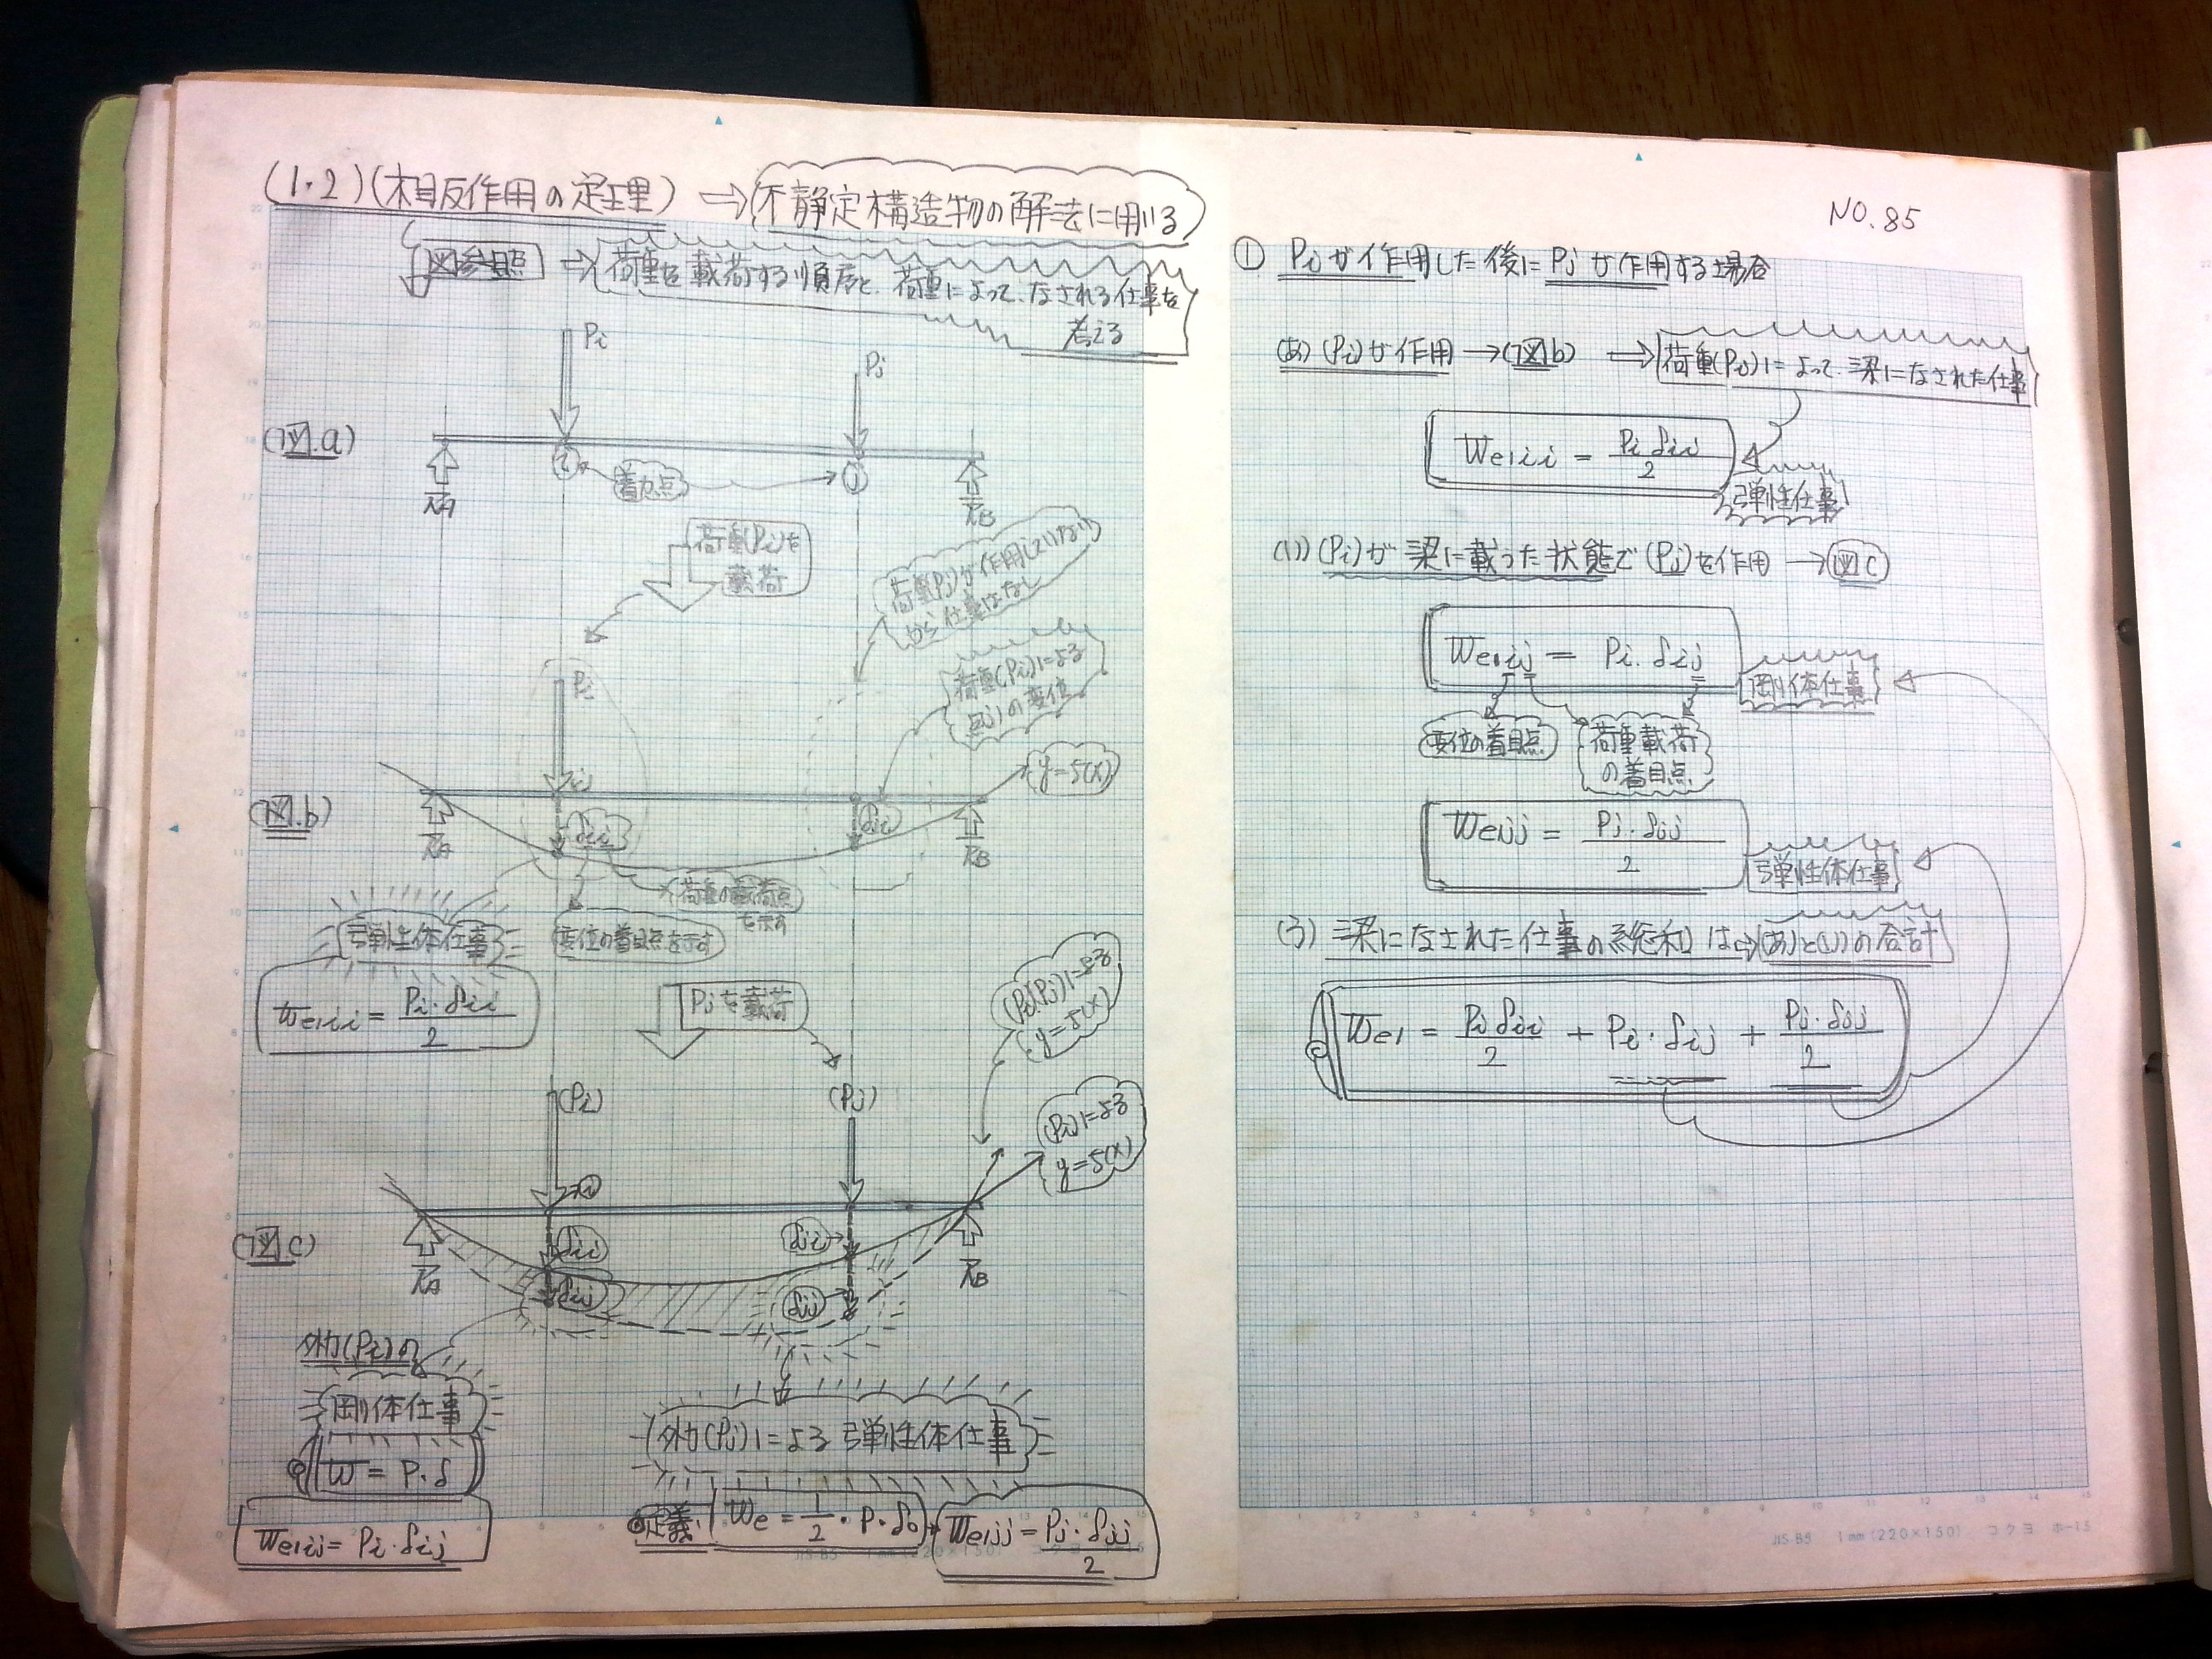 (1.2)(相反作用の定理) ⇒ 不静定構造物の解法に用いる
図参照 ⇒ 荷重を載荷する順序と、荷重によって、なされる仕事を
考える
Pi
Pj
(図.a)
i
着力点
j
RA
RB
荷重(Pi)を
載荷
荷重(Pj)が作用していない
から仕事はなし
荷重(Pi)による
点(j)の変位
Pi
y=δ(x)
(図.b)
i
δii
δji
RA
RB
荷重の載荷点
を示す
変位の着目点を示す
弾性体仕事
We1ii = Pi・δii / 2
Pjを載荷
(Pi)(Pj)による
y=δ(x)
(Pi)
(Pj)
(Pi)による
y=δ(x)
(図.c)
δii
δji
δij
δjj
RA
RB
外力(Pi)の
剛体仕事
W = P・δ
We1ij = Pi・δij
外力(Pj)による弾性体仕事
定義. We = 1/2・P・δo
We1jj = Pj・δjj / 2
NO.85
① Piが作用した後にPjが作用する場合
(あ) (Pi)が作用 → (図b) ⇒ 荷重(Pi)によって、梁になされた仕事
We1ii = Pi δii / 2
弾性仕事
(い) (Pi)が梁に載った状態で(Pj)を作用 → 図c
We1ij = Pi・δij
剛体仕事
変位の着目点
荷重載荷
の着目点
We1jj = Pj・δjj / 2
弾性体仕事
(う) 梁になされた仕事の総和は⇒(あ)と(い)の合計
We1 = Pi δii / 2 + Pi・δij + Pj・δjj / 2
JIS-B5 1mm(220×150) コクヨ ホ-15
JIS-B5 1mm(220×150) コクヨ ホ-15